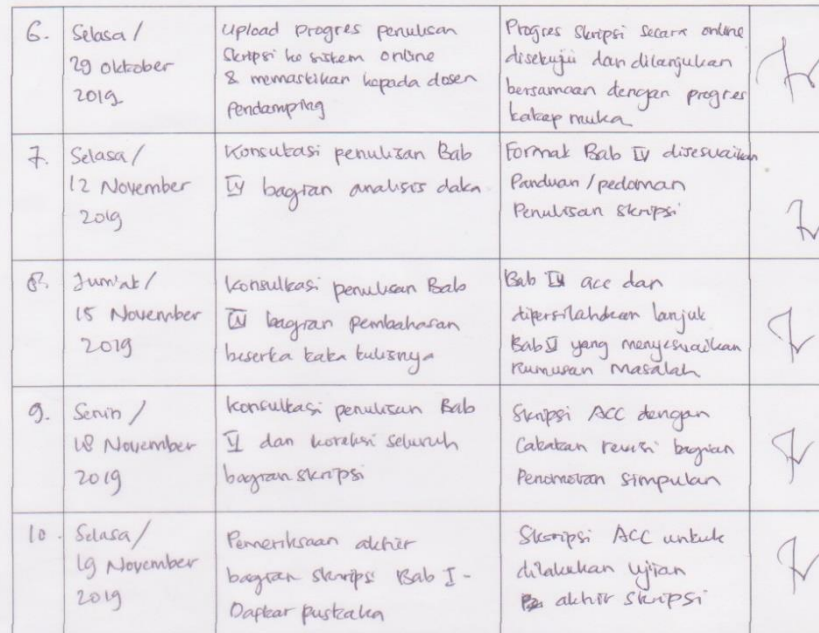 6.
Selasa /
29 oktober
2019
Upload progres penulisan
skripsi ke sistem online
& memastikan kepada dosen
Pendamping
Progres skripsi secara online
disetujui dan dilanjutkan
bersamaan dengan progres
tatap muka
7.
Selasa /
12 November
2019
Konsultasi penulisan Bab
IV bagian analisis data
Format Bab IV disesuaikan
Panduan / pedoman
Penulisan skripsi
8.
Jum'at /
15 November
2019
Konsultasi penulisan Bab
IV bagian pembahasan
beserta tata tulisnya
Bab IV acc dan
dipersilahkan lanjut
Bab V yang menyesuaikan
Rumusan Masalah
9.
Senin /
18 November
2019
Konsultasi penulisan Bab
V dan koreksi seluruh
bagian skripsi
Skripsi ACC dengan
Catatan revisi bagian
Penomoran simpulan
10.
Selasa /
19 November
2019
Pemeriksaan akhir
bagian skripsi Bab I -
Daftar pustaka
Skripsi ACC untuk
dilakukan ujian
akhir skripsi